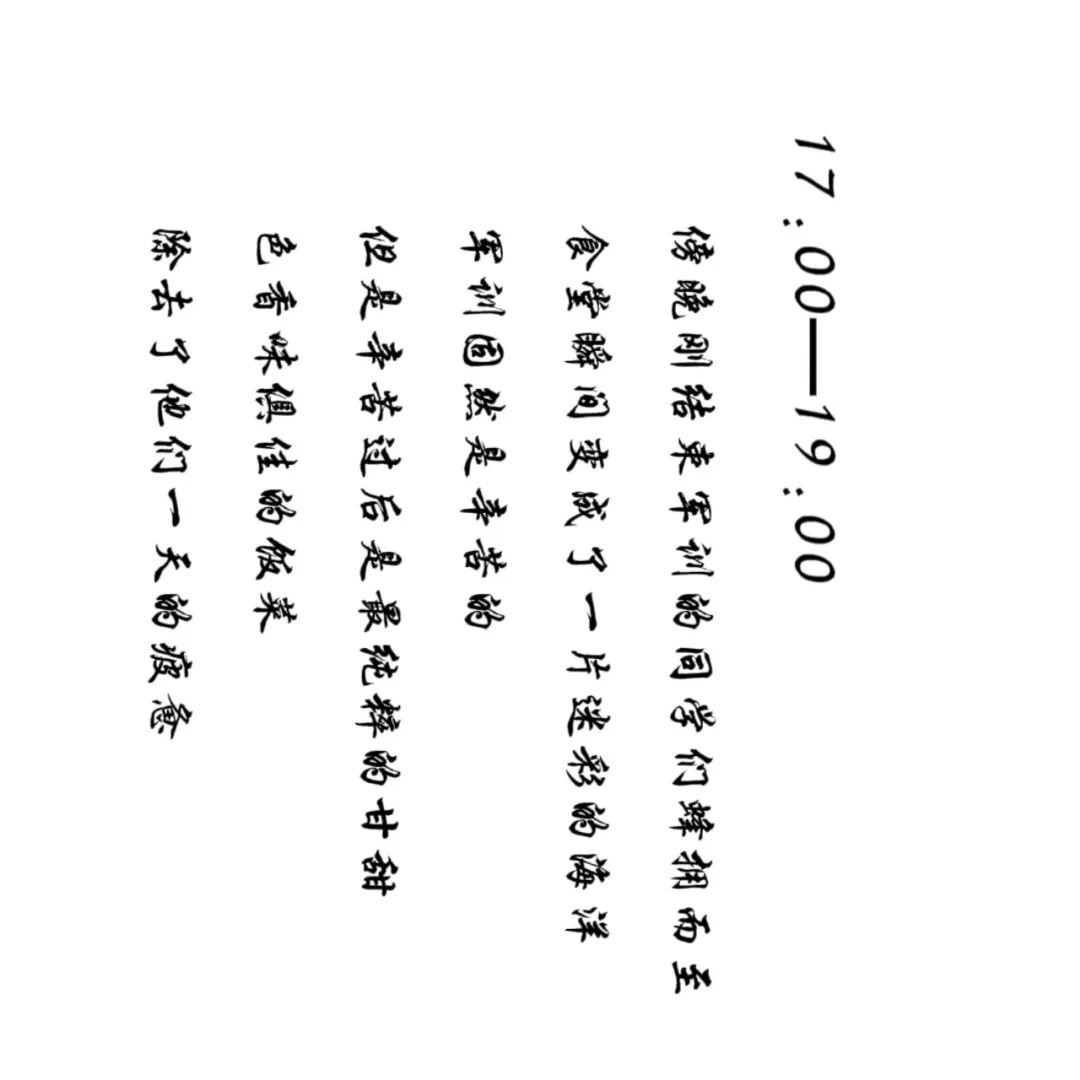 17:00—19:00
傍晚刚结束军训的同学们蜂拥而至
食堂瞬间变成了一片迷彩的海洋
军训固然是辛苦的
但是辛苦过后是最纯粹的甘甜
色香味俱佳的饭菜
除去了他们一天的疲惫